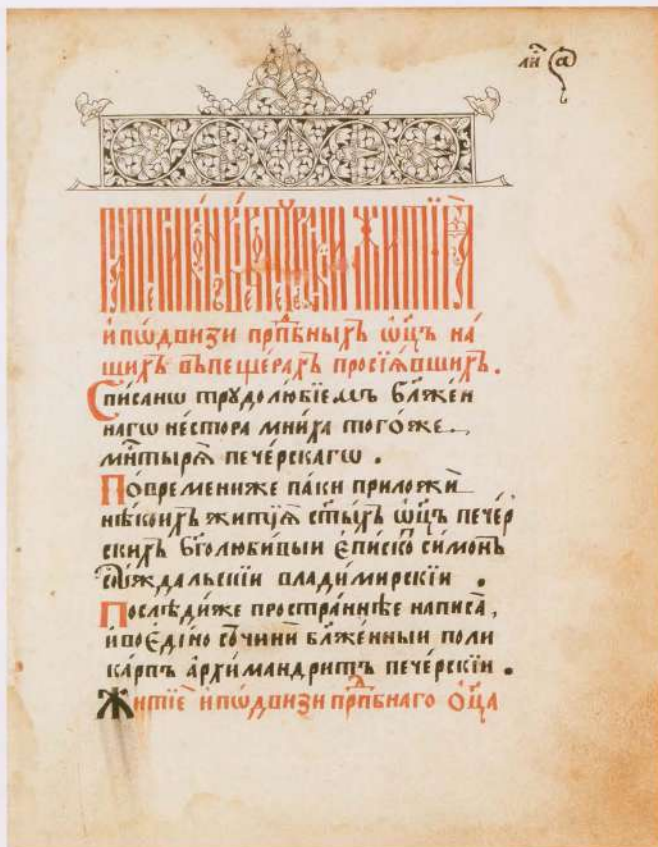 ли҃ а
житїѧ̀
и҆пѡ́двизи прпⷣбныхъ ѡ҆ц҃ъ на́
шихъ въпеще́рахъ просїѧ́вших̾.
Списанѡ трꙋдолю́бїемъ бл҃же́н
нагѡ не́стора мни́ха тогѡ́же
мн҃тырѧ̀ пече́рскагѡ .
Повремени́же па́ки приложѝ
нѣ́коихъ житїѧ̀ ст҃ы́хъ ѡ҆ц҃ъ пече́р
скихъ бг҃олюби́выи є҆пи́ско си́монъ
сꙋ́ждальскїи влади́мирскїи .
Послѣди́же простра́ннѣе написа̀,
и҆воє҆ди́но сочинѝ бл҃же́нныи поли
ка́рпъ а҆рхимандри́тъ пече́рскїи .
Житїѐ и҆пѡ́двизи прпⷣбнаго ѻ҆ц҃а